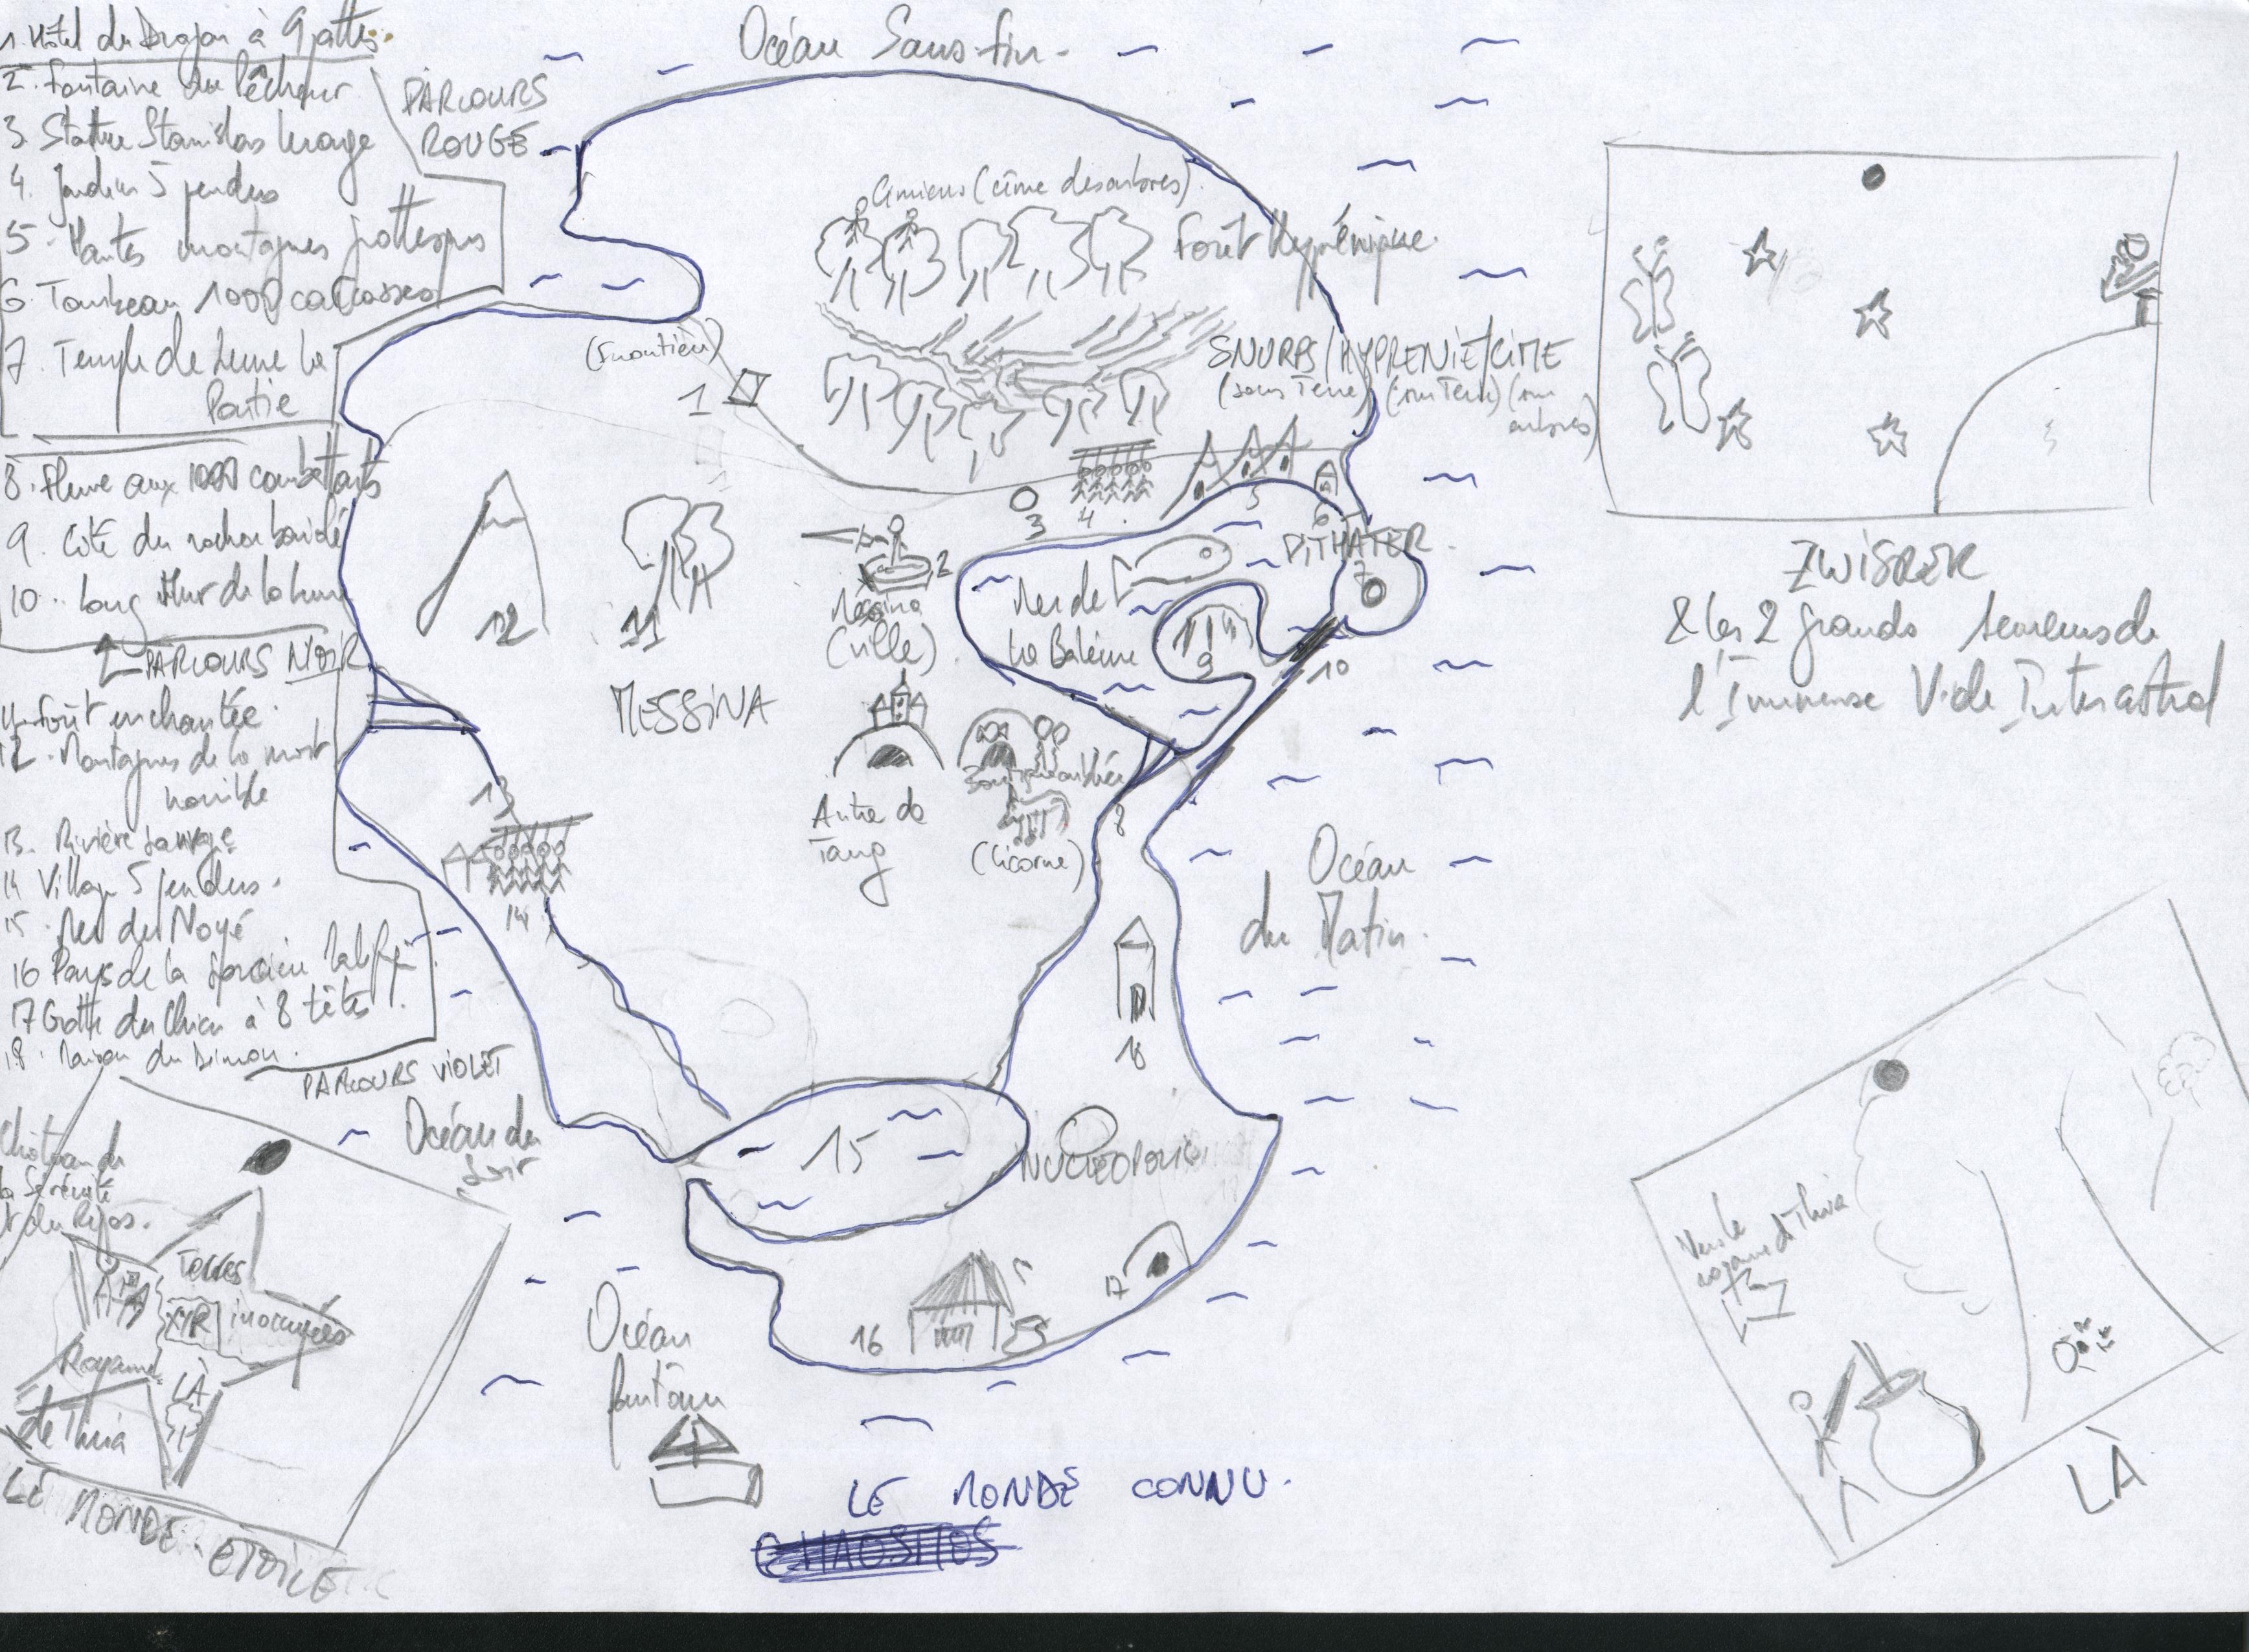 1. Hôtel du Dragon à 9 pattes.
2. Fontaine du Pêcheur
3. Statue Stanislas
4. Jardin 5 pendus
5. Hautes montagnes
6. Tombeau 1000 carcasses
7. Temple de
Partie
PARCOURS
ROUGE
8. Fleuve aux 1000 combattants
9. Cité du rocher
10. Long Mur de la
PARCOURS NOIR
11. Forêt enchantée.
12. Montagnes de la mort
horrible
13. Rivière sauvage
14 Village 5 pendus.
15. Mer du Noyé
16 Pays de la Sorcière
17 Grotte du Chien à 8 têtes
18. Maison du Démon.
PARCOURS VIOLET
Océan Sans-fin.
(cîme des arbres)
Forêt Hyprénique.
(Frontière)
1
SNURPS/HYPRENIE/CIME
(sous Terre) (sur Terre) (sur
arbres)
3
4
5
6
DITHATER.
7
2
Messina
(ville)
Mer de
La Baleine
9
10
12
11
MESSINA
Antre de
Tang
(Licorne)
8
13
14
Océan
du Matin.
18
15
NUCLEOPOLIS
17
16
Océan du
Soir
Océan
fantôme
LE MONDE CONNU.
Château de
la Sérénité
et du Repos.
Terres
inoccupées
XYR
Royaume
de Thira
LÀ
LE MONDE-ETOILE
ZWISRER
& les 2 grands Semeurs de
l'Immense Vide Interastral
Vers le
royaume de Thira
LÀ